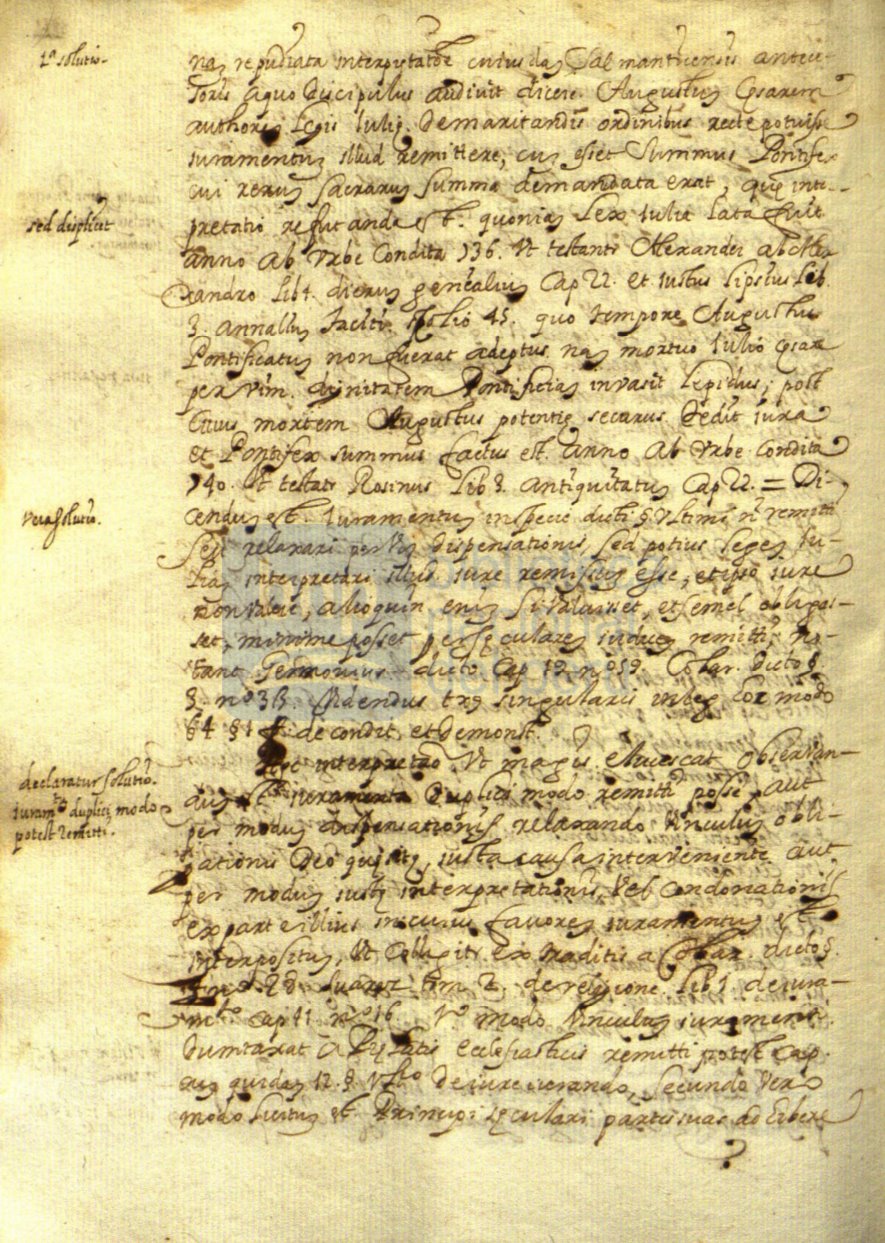 1ª solutio.
naz repudiata interpretatõe cuiusdaz Salmanticensis antece-
soris aquo discipulus audivit dicere. Augustuz Cesarem
authorez legis Iulie. de maritandis ordinibus recte potuisse
iuramentuz illud remittere, cuz esset Summus Pontifex
cui reruz Sacraruz Summa demandata erat, que inter-
sed displicet
pretatio refutanda est. quoniaz lex Iulia lata fuit
anno ab Urbe Condita 736. Ut testante Alexander ab Alex
andro lib 4. dieruz genialiuz Cap 22. et iustus lipsius lib.
3. annalluz Taciti folio 45. quo tempore Augustus
Pontificatuz non fuerat adeptus. naz mortuo Iulio Cesare
per vim. dignitatem Pontificiaz invasit lepidus; post
Cuius mortem Augustus potentie securus dedit iura
et Pontifex summus factus est. anno ab Urbe Condita
740. Ut testatr Rosinus lib 3. antiquitatuz Cap 22. = Di-
Vera solutio.
cenduz est. Iuramentuz in specie dicti § Ultimi nõ remitti
seu relaxari per viaz dispensationis, sed potius legez Iu-
liaz interpretari illus iure remissuz esse, et ipso iure
non valere, alioquin eniz si valuisset, et semel obligas-
set, minime posset per secularez iudicez remitti, no-
tant Germonius dicto Cap 19. nº 59. Cobar. dicto §
3. nº 3 Videndus singularis in leg. hoc modo
§ 4 § 1 ff de condit. et demonst.
interpretatio Ut magis. elucescat observan-
declaratur solutio.
iuramtº duplici modo
potest remitti.
duz est iuramenta duplici modo remitti posse, aut
per moduz dispensationis relaxando Vinculuz obli-
gationis Deo quesite, iusta causa interveniente. aut
per moduz iuste interpretationis, Vel Condonationis
ex parte illius in cuius favorez iuramentuz est
interposituz, Ut Colligitr ex traditis a Cobar. dicto §
Suarez tom 2. de religione lib 1. de iura-
mtº Cap 41 nº 16. modo Vinculuz iuramenti
dumtaxat a Prelatis Ecclesiasticis remitti potest Cap.
quidaz 12. § Ultº de iure iurando, Secundo Vero
modo licituz est Principi seculari partes suas adhibere